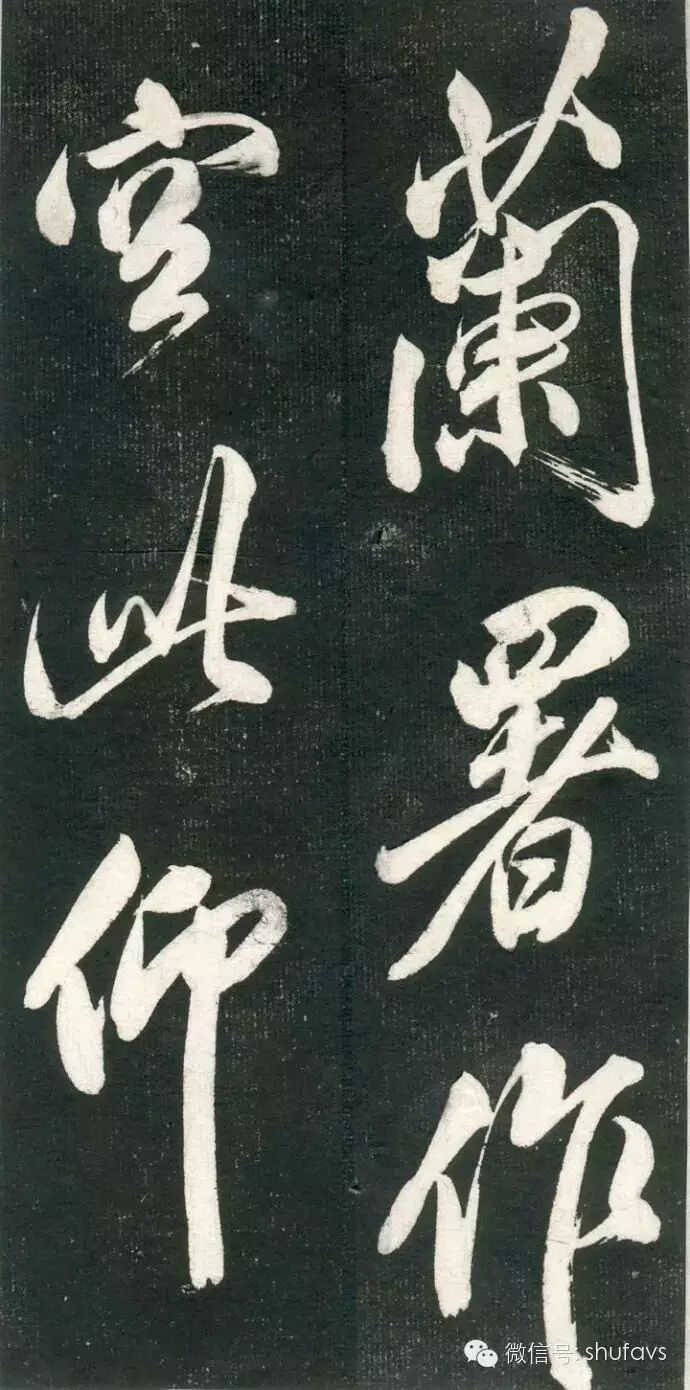 蘭署作
宫此仰
微信号: shufavs